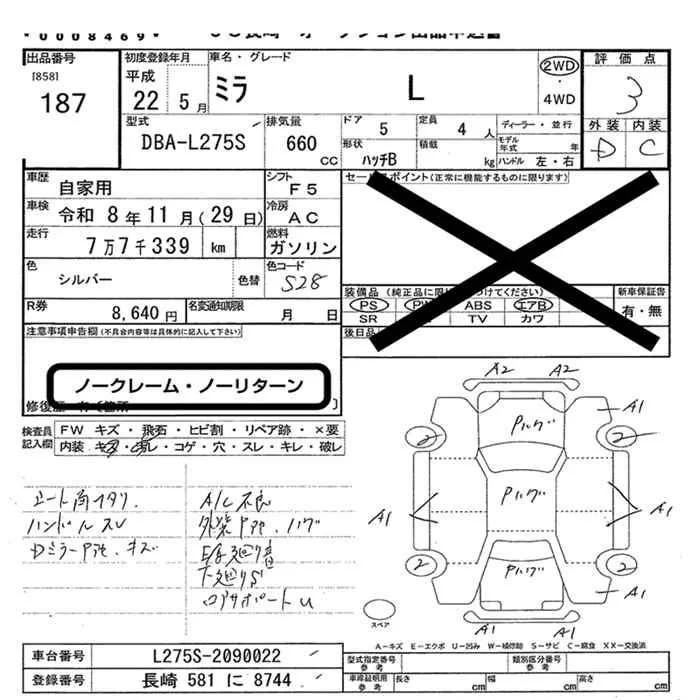 *0008469*
出品番号
[858]
187
初度登録年月
平成
22 5月
車名・グレード
ミラ L
2WD
・
4WD
評価点
3
外装 内装
D C
型式
DBA-L275S
排気量
660
CC
ドア 5
定員 4 人
形状
ハッチB
積載 kg
ディーラー・並行
モデル年式 年
ハンドル 左・右
車歴
自家用
シフト
F5
車検
令和 8年11月(29日)
冷房
AC
走行
7万7千339 km
燃料
ガソリン
色
シルバー
色替
色コード
S28
R券
8,640円
名変通知期限
月 日
セールスポイント(正常に機能するものに限ります)
装備品
PS PW ABS エアB
SR TV カワ
新車保証書
有・無
後日品
注意事項申告欄(不具合内容等は具体的に記入して下さい)
ノークレーム・ノーリターン
検査員
記入欄
FW キズ・飛石・ヒビ割・リペア跡・×要
内装 キズ・汚レ・コゲ・穴・スレ・キレ・破レ
ハンドルスレ
A/C不良
下廻りS
A2 A2
A1
Pハゲ
2 2
Pハゲ
A1 A1
Pハゲ
2 2
A1
A1 A1
スペア
A―キズ E―エクボ U―凹み W―補修跡 S―サビ C―腐食 XX―交換済
車台番号
L275S-2090022
登録番号
長崎 581 に 8744
型式指定番号
参考
類別区分番号
参考
車線証明用
参考
長さ cm
幅 cm
高さ cm